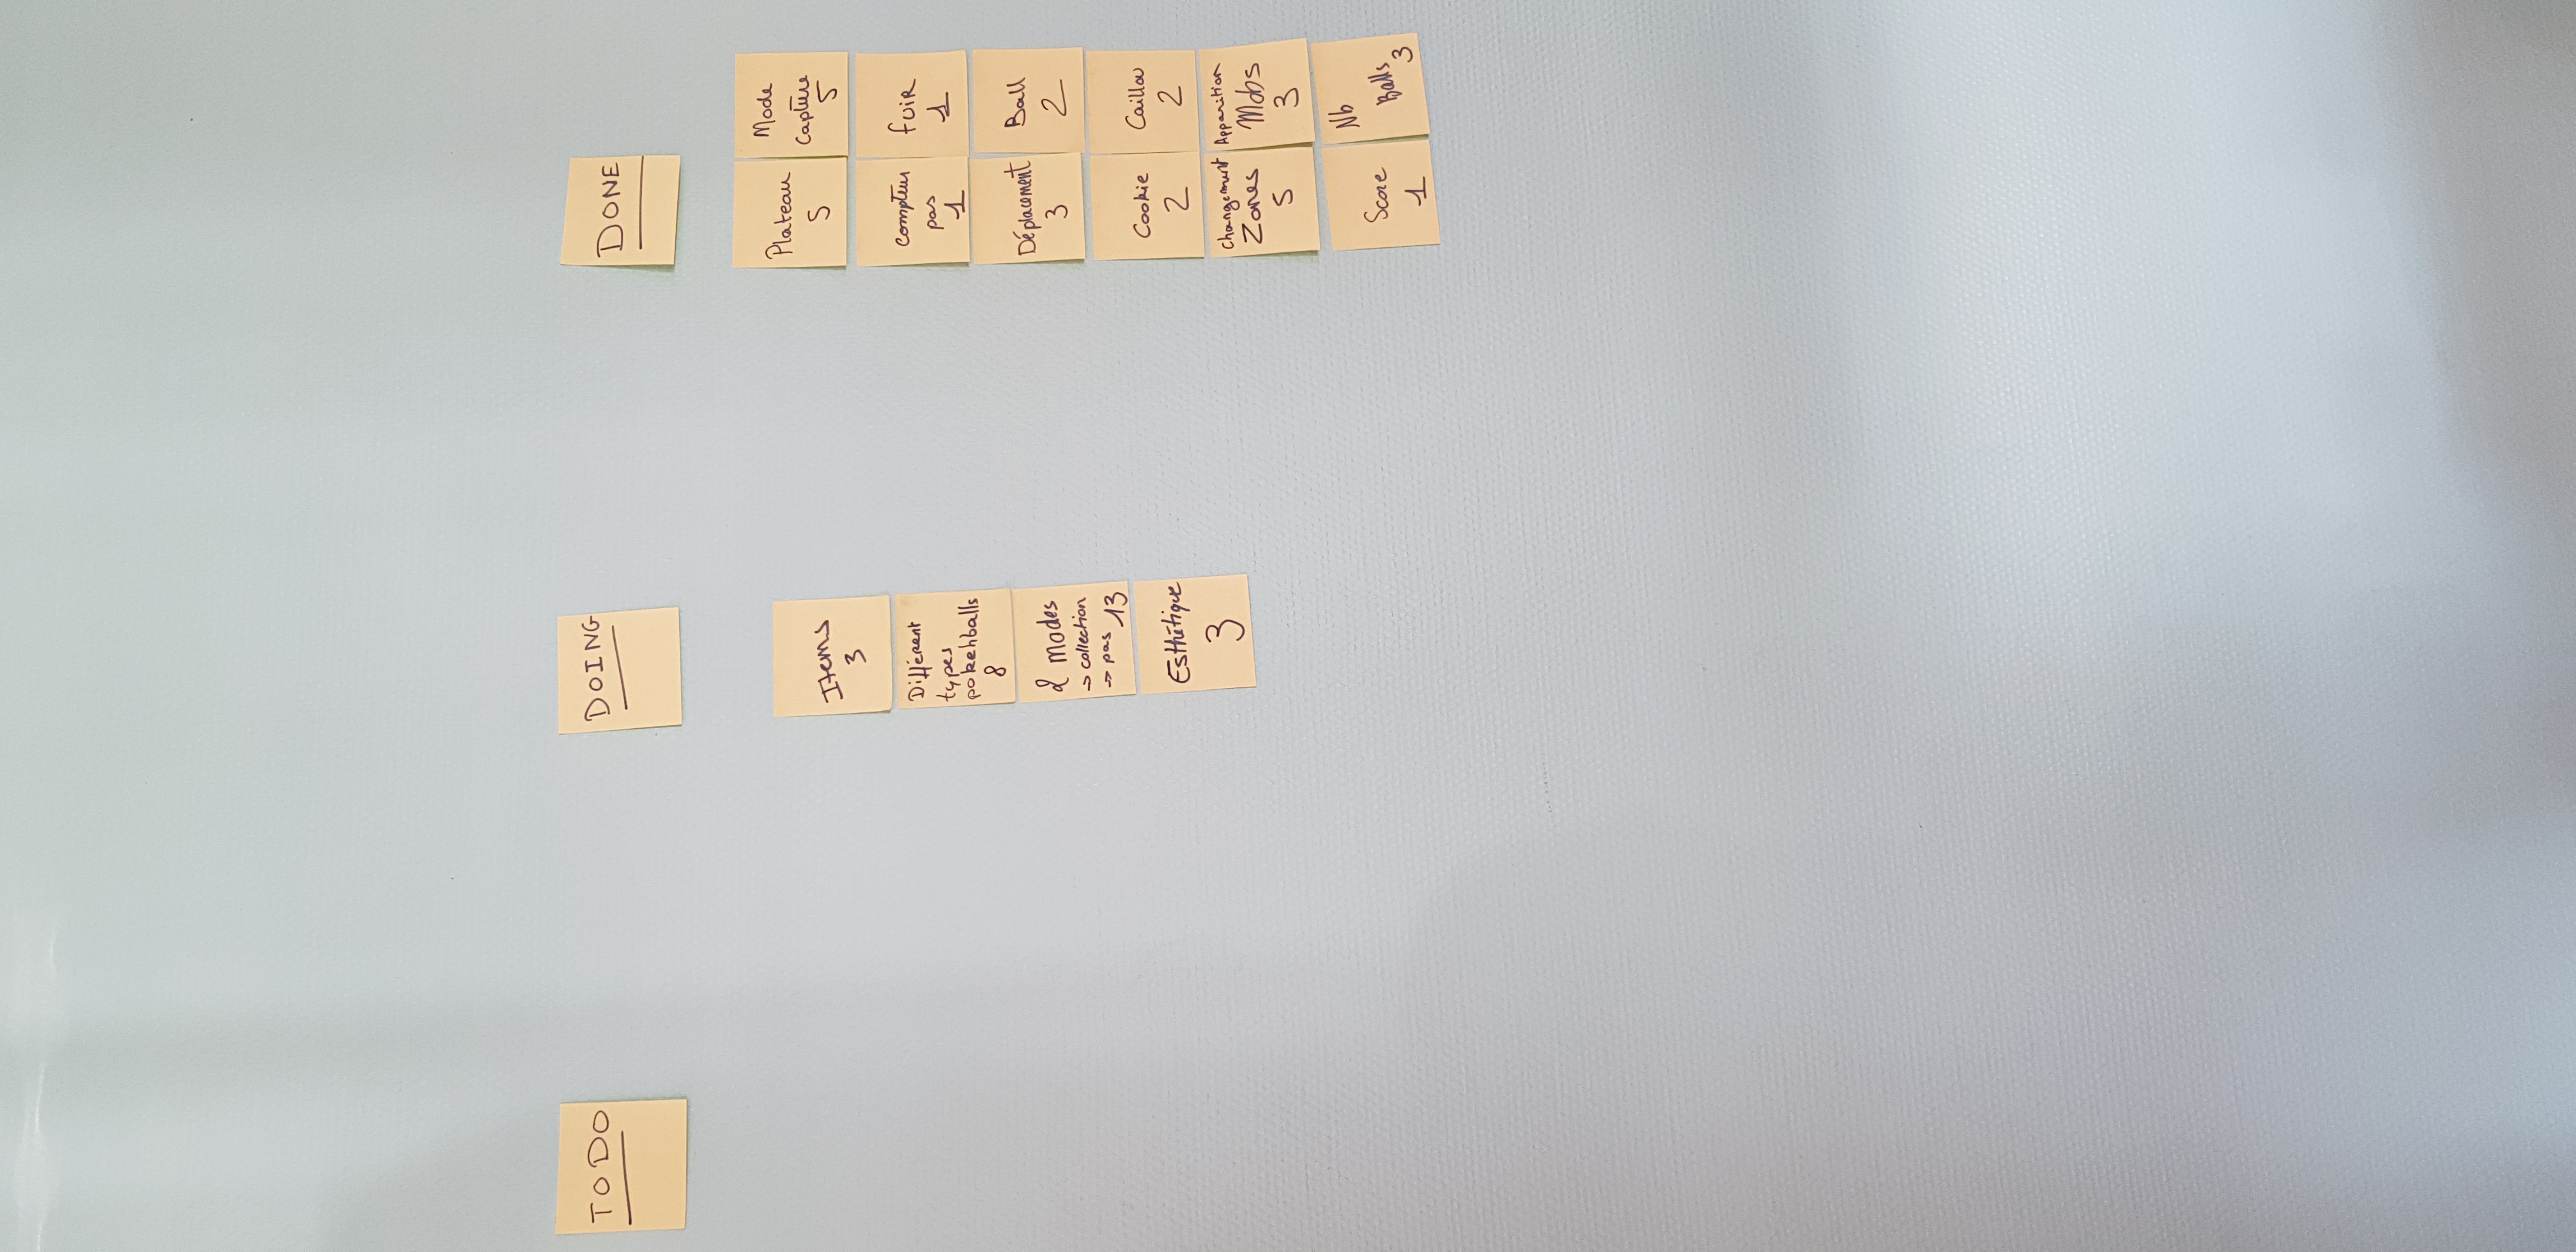 TO DO
DOING
DONE
Items
3
Différent
types
pokehballs
8
2 modes
→ collection
→ pas 13
Esthétique
3
Plateau
5
Mode
Capture
5
Compteur
pas
1
fuir
1
Déplacement
3
Ball
2
Cookie
2
Caillou
2
Changement
Zones
5
Apparition
Mobs
3
Score
1
Nb
Balls
3